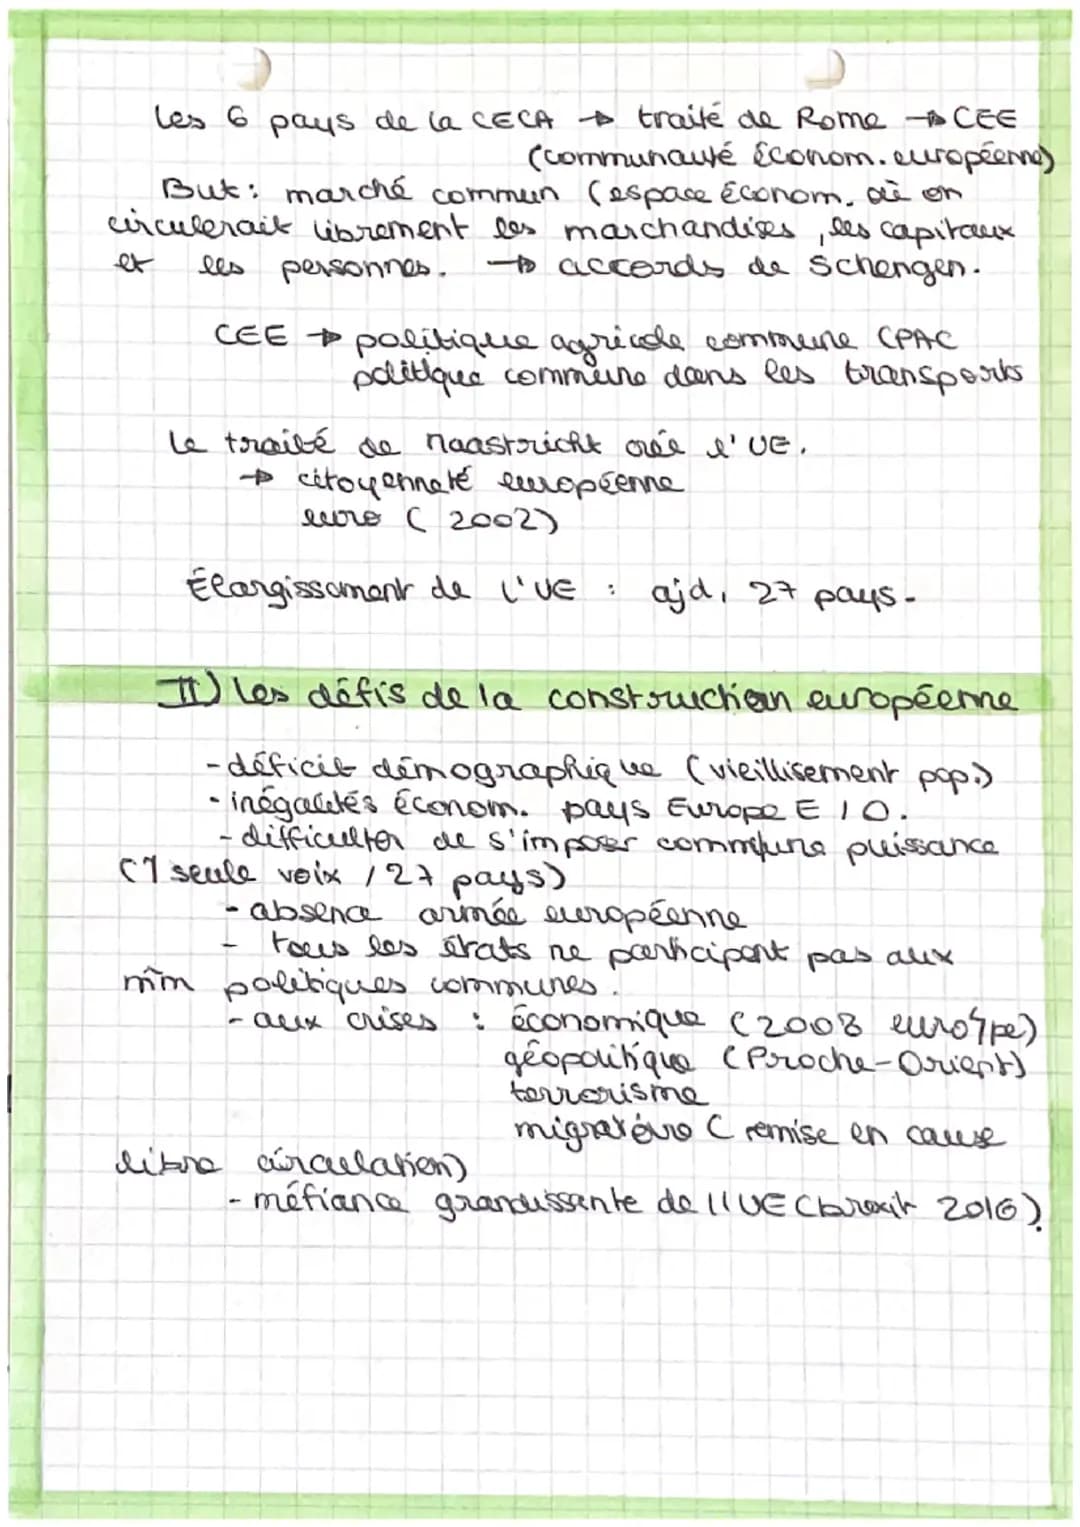 Les 6 pays de la CECA → traité de Rome → CEE
(communauté Économ. européenne)
But : marché commun (espace économ. où on
circulerait librement les marchandises, les capitaux
et les personnes. → accords de Schengen.
CEE → politique agricole commune (PAC
politique commune dans les transports
Le traité de Maastricht crée l'UE.
→ citoyenneté européenne
euro (2002)
Élargissement de l'UE : ajd, 27 pays.
II) Les défis de la construction européenne
- déficit démographique (vieillisement pop.)
- inégalités économ. pays Europe E / O.
- difficulter de s'imposer comm une puissance
(1 seule voix / 27 pays)
- absence armée européenne
- tous les états ne participent pas aux
mïm politiques communes.
- aux crises : économique (2008
géopolitique (Proche-Orient)
terrorisme
migratoire (remise en cause
libre circulation)
- méfiance grandissante de l'UE (brexit 2016)